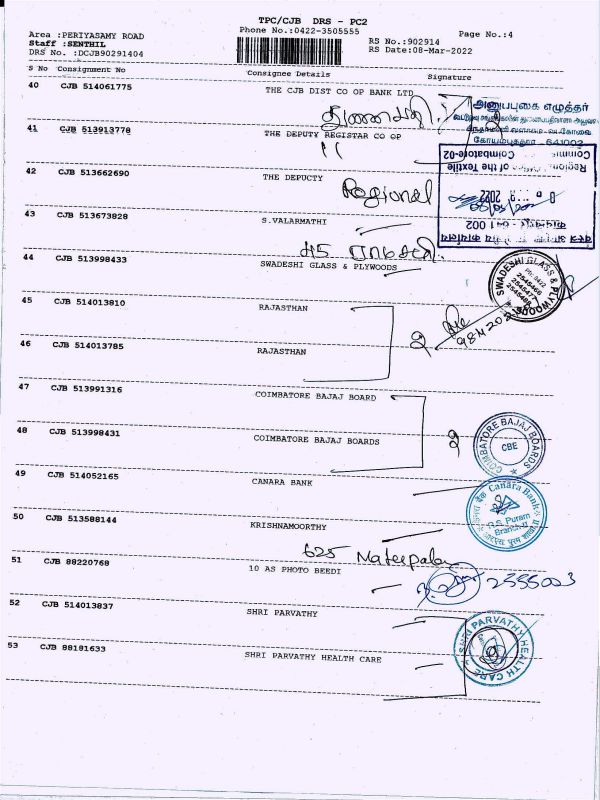 TPC/CJB DRS - PC2
Phone No.:0422-3505555
Page No.:4
Area :PERIYASAMY ROAD
Staff :SENTHIL
DRS No. :DCJB90291404
RS No.:902914
RS Date:08-Mar-2022
S No Consignment No Consignee Details Signature
40 CJB 514061775 THE CJB DIST CO OP BANK LTD
அனுபவகை எழுத்தர்
கோயம்புத்தூர் - 641002
41 CJB 513913778 THE DEPUTY REGISTAR CO OP
11
Regional of the Textile
Coimbatore-02
42 CJB 513662690 THE DEPUCTY
Regional
2022
43 CJB 513673828 S.VALARMATHI
44 CJB 513998433 SWADESHI GLASS & PLYWOODS
SWADESHI GLASS & PLYWOODS
Ph: 0422
45 CJB 514013810 RAJASTHAN
2
46 CJB 514013785 RAJASTHAN
47 CJB 513991316 COIMBATORE BAJAJ BOARD
2
48 CJB 513998431 COIMBATORE BAJAJ BOARDS
COIMBATORE BAJAJ BOARDS
CBE
49 CJB 514052165 CANARA BANK
Canara Bank
R.S. Puram
Branch-II
50 CJB 513588144 KRISHNAMOORTHY
625
51 CJB 88220768 10 AS PHOTO BEEDI
52 CJB 514013837 SHRI PARVATHY
SHRI PARVATHY HEALTH CARE
53 CJB 88181633 SHRI PARVATHY HEALTH CARE